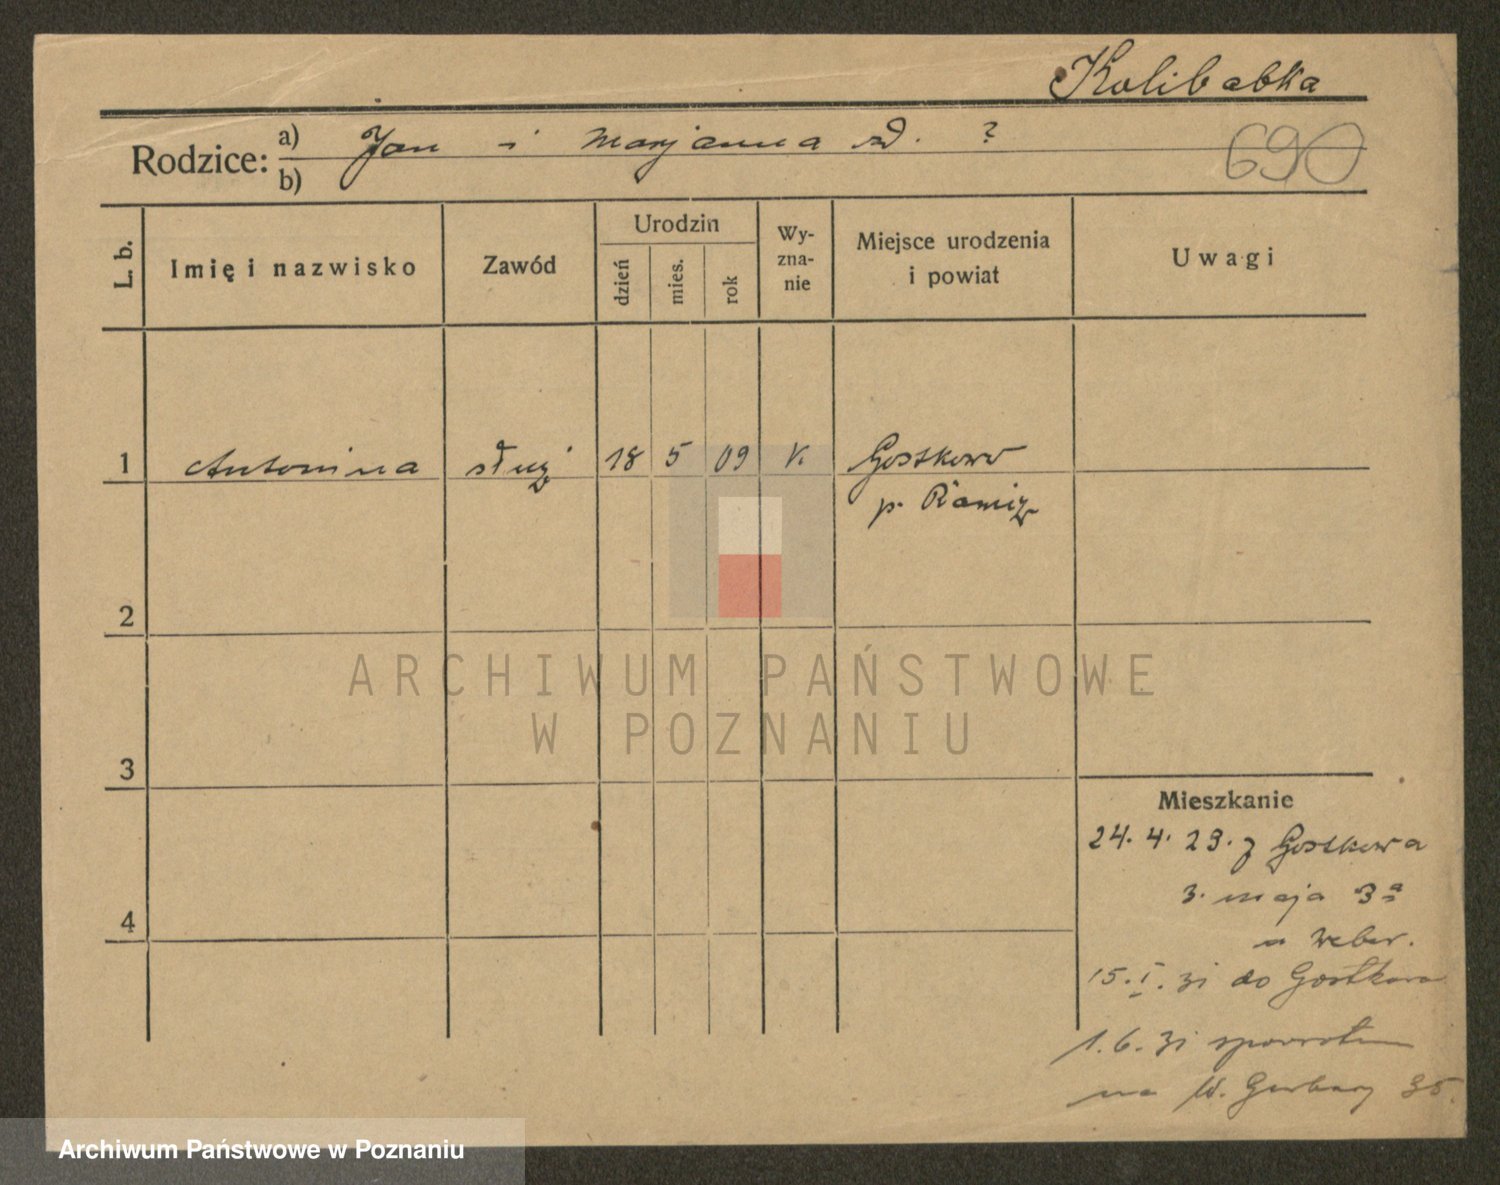 Kolibabka
Rodzice: a) Jan i Marjanna zd. ?
b)
690
L. b.
Imię i nazwisko
Zawód
Urodzin
dzień
mies.
rok
Wy-
zna-
nie
Miejsce urodzenia
i powiat
Uwagi
1 Antonina służ. 18 5 09 k. Gostkowo
p. Rawicz
2
3
4
Mieszkanie
24. 4. 29. z Gostkowa
3. maja 3a
u Weber.
15. I. 31 do Gostkowa
1. 6. 31 spowrotem
na W. Garbary 35.
ARCHIWUM PAŃSTWOWE
W POZNANIU
Archiwum Państwowe w Poznaniu